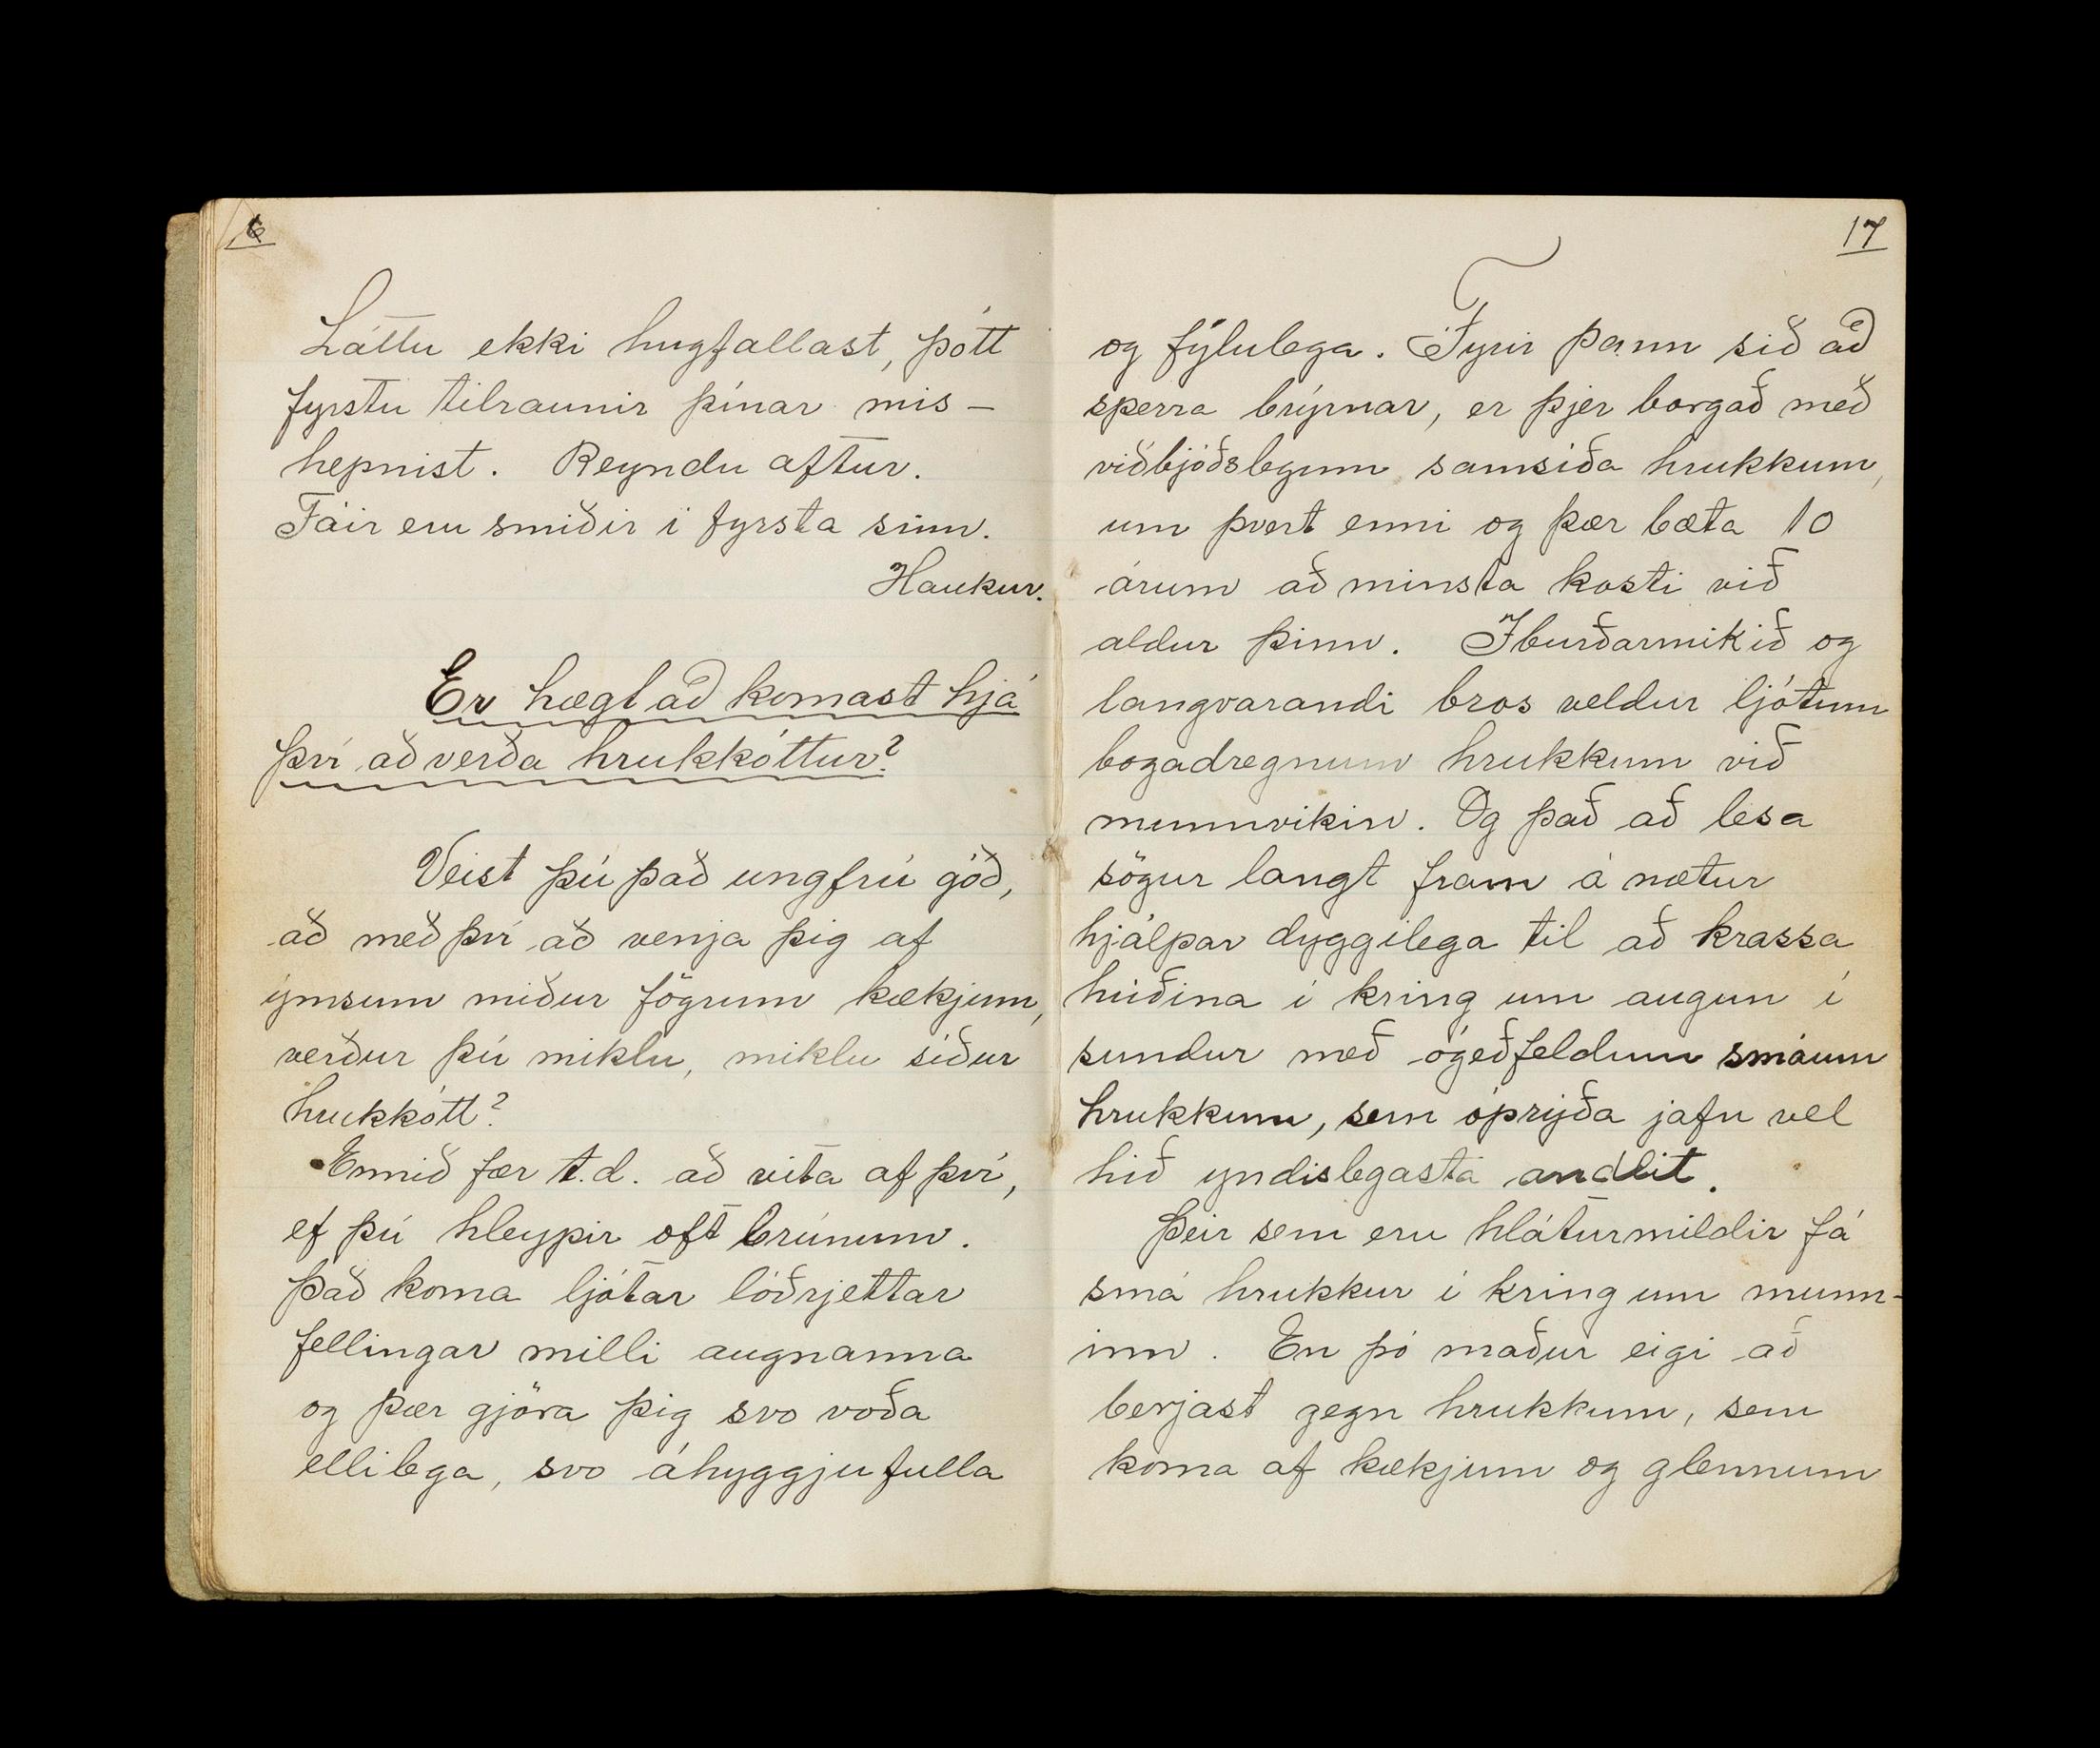 16
Láttu ekki hugfallast, þótt
fyrstu tilraunir þínar mis-
hepnist. Reyndu aftur.
Fáir eru smiðir í fyrsta sinn.
Haukur.
Er hægt að komast hjá
því að verða hrukkóttur?
Veist þú það ungfrú góð,
að með því að venja þig af
ýmsum miður fögrum kækjum,
verður þú miklu, miklu síður
hrukkótt?
Ennið fær t.d. að vita af því,
ef þú hleypir oft brúnum.
Það koma ljótar lóðrjettar
fellingar milli augnanna
og þær gjöra þig svo voða
ellilega, svo áhyggjufulla
17
og fýlulega. Fyrir þann sið að
sperra brýrnar, er þjer borgað með
viðbjóðslegum samsíða hrukkum,
um þvert enni og þær bæta 10
árum að minsta kosti við
aldur þinn. Íburðarmikið og
langvarandi bros veldur ljótum
bogadregnum hrukkum við
munnvikin. Og það að lesa
sögur langt fram á nætur
hjálpar dyggilega til að krassa
húðina í kring um augun í
sundur með ógeðfeldum smáum
hrukkum, sem óprýða jafn vel
hið yndislegasta andlit.
Þeir sem eru hláturmildir fá
smá hrukkur í kring um munn-
inn. En þó maður eigi að
berjast gegn hrukkum, sem
koma af kækjum og glennum